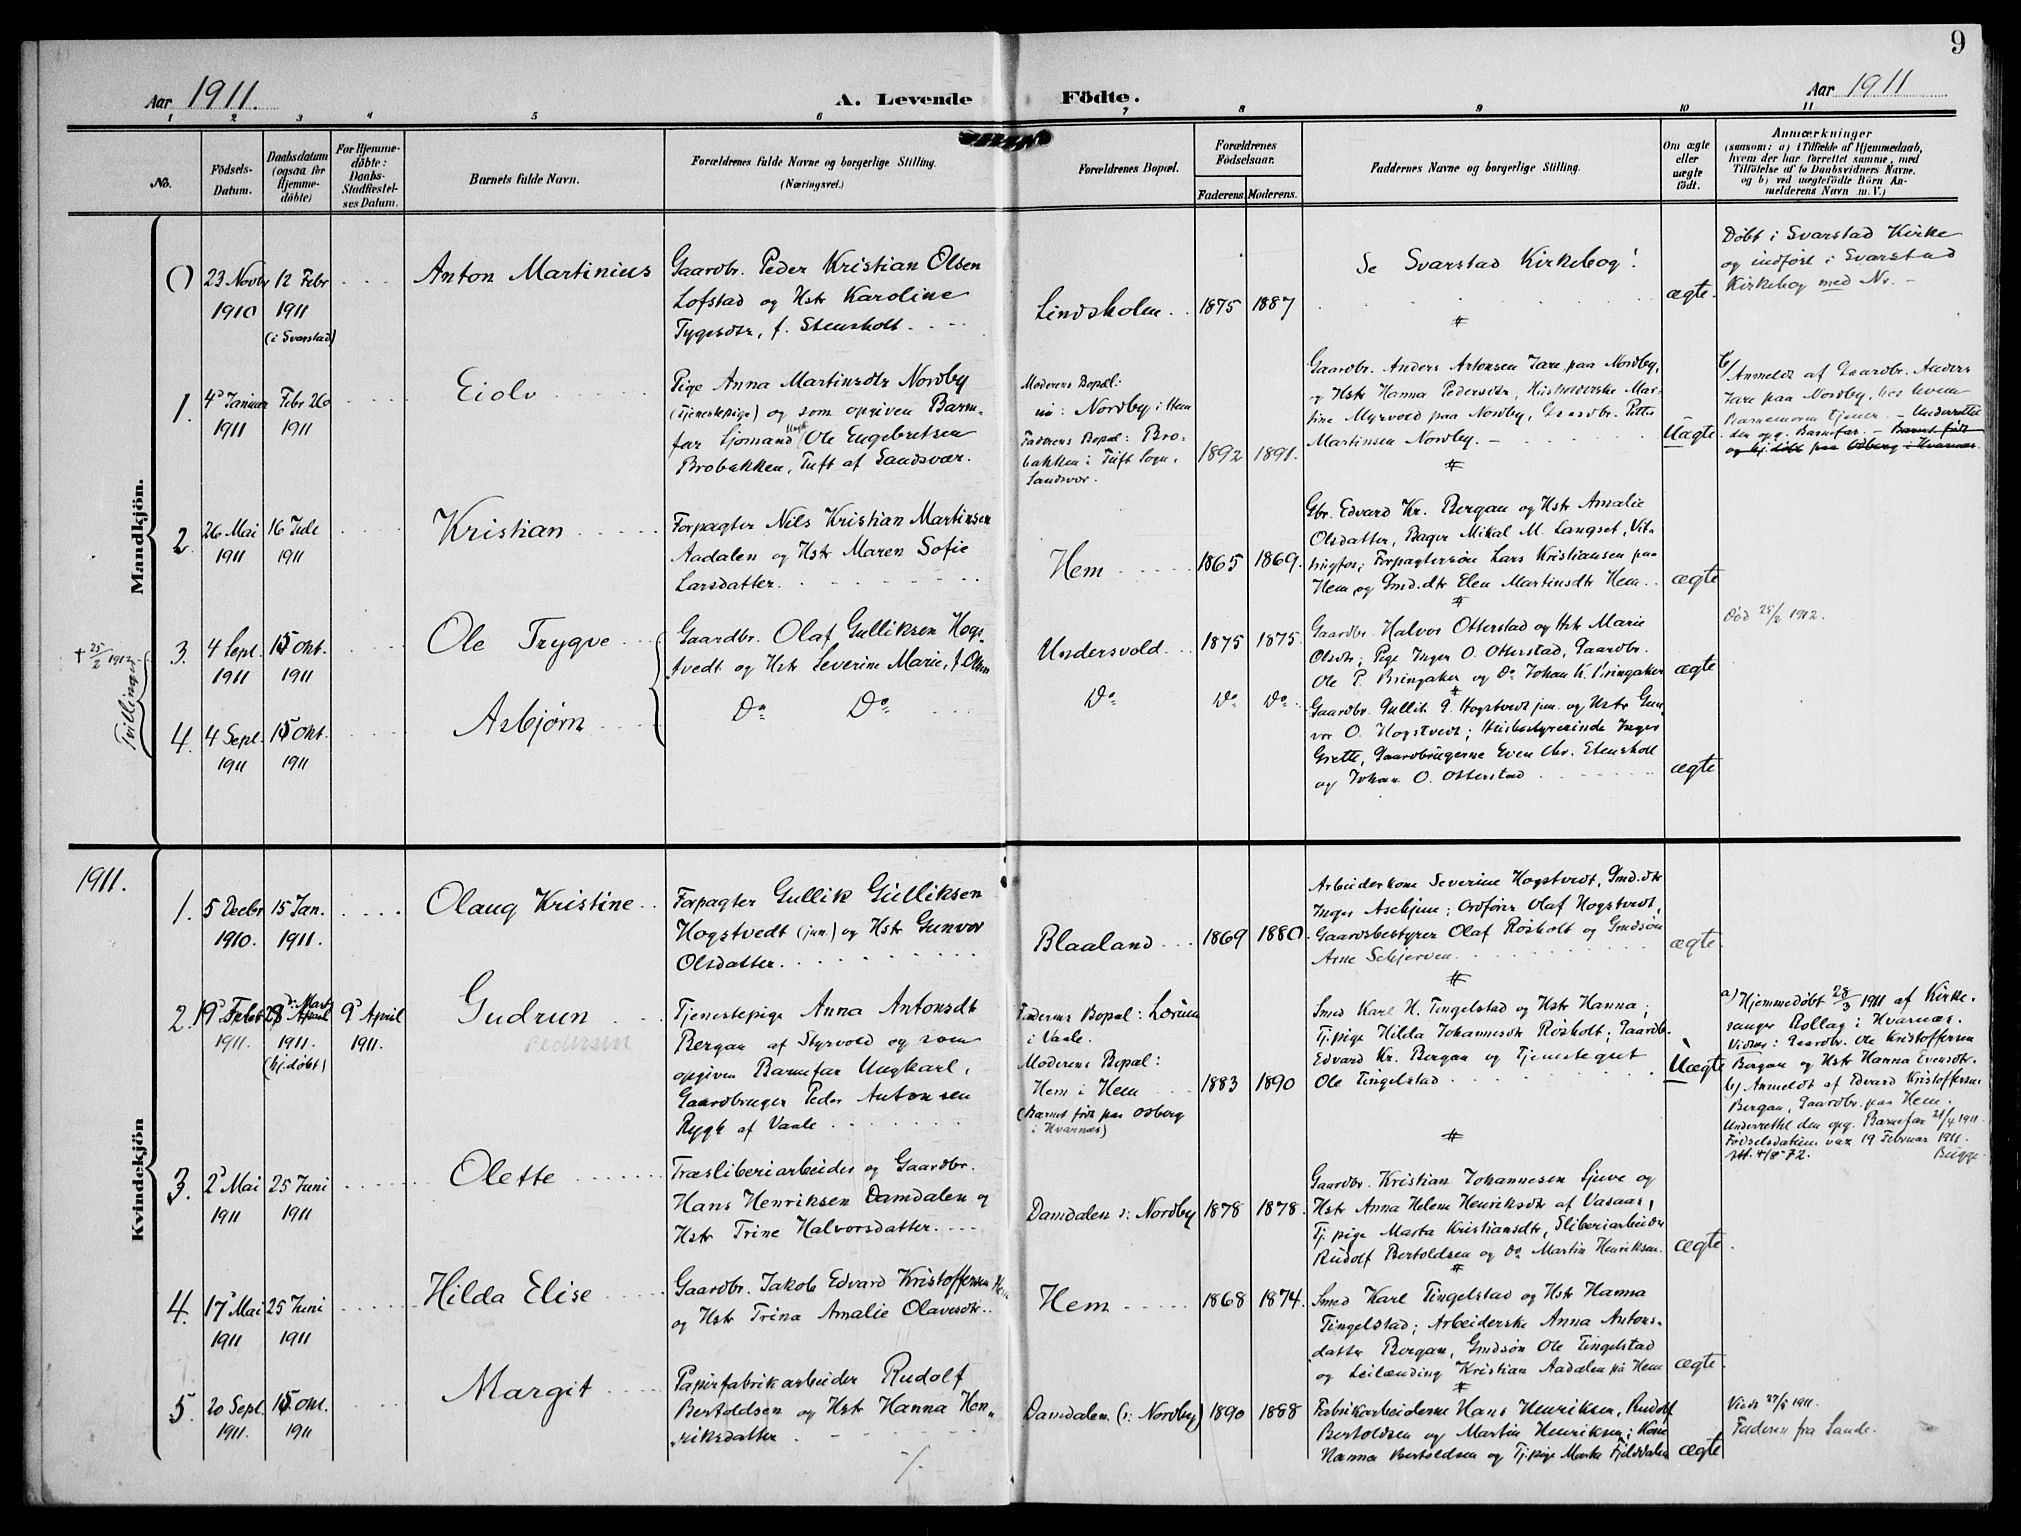 9
Aar 1911. A. Levende Födte. Aar 1911
1 2 3 4 5 6 7 8 9 10 11
No.
Födsels-
Datum.
Daabsdatum
(ogsaa for
Hjemme-
döbte)
For Hjemme-
döbte:
Daabs-
Stadfæstel-
ses Datum.
Barnets fulde Navn.
Forældrenes fulde Navne og borgerlige Stilling.
(Næringsvei.)
Forældrenes Bopæl.
Forældrenes
Födselsaar.
Faderens. Moderens.
Faddernes Navne og borgerlige Stilling.
Om ægte
eller
uægte
födt.
Anmærkninger
(saasom: a) i Tilfælde af Hjemmedaab,
hvem der har forrettet samme, med
Tilföielse af to Daabsvidners Navne.
og b) ved uægtefödte Börn An-
melderens Navn m. V.)
Mandkjön.
()
23 Novbr
1910
12 Febr
1911
(i Svarstad)
Anton Martinius
Gaardbr. Peder Kristian Olsen
Lofstad og Hstr Karoline
Tygesdtr, f. Stensholt.
Lindsholm
1875 1887
Se Svarstad Kirkebog!
ægte.
Døbt i Svarstad Kirke
og indført i Svarstad
Kirkebog med Nr. -
1.
4de Januar
1911
Febr 26
1911
Eiolv
Pige Anna Martinsdtr Nordby
(Tjenestepige) og som opgiven Barn-
far Sjømand Ungk. Ole Engebretsen
Brobakken, Tuft af Sandsvær.
Moderens Bopæl:
Nordby i Hem
Faderens Bopæl: Bro-
bakken i Tuft Sogn,
Sandsvær.
1892 1891.
Gaardbr. Anders Antonsen Jare paa Nordby,
og Hstr Hanna Pedersdtr, Husholderske Mar-
tine Myrvold paa Nordby, Gaardbr.
Martinsen Nordby.
Uægte
b/ Anmeldt af Gaardbr. Anders
Jare paa Nordby, hos hvem
Barnemoren tjener. - Underrettet
den opg. Barnefar. - Barnet født
og hj.døbt paa Odberg i Hvarnæs.
2.
26 Mai
1911
16 Jule
1911
Kristian
Forpagter Nils Kristian Martinsen
Aadalen og Hstr Maren Sofie
Larsdatter.
Hem
1865 1869.
Gbr. Edvard Kr. Bergan og Hstr Amalie
Olsdatter, Bager Mikal M. Langset, Vit-
tingfos; Forpagtersøn Lars Kristiansen paa
Hem, og Gmd.dtr Elen Martinsdtr Hem.
ægte
† 25/2 1912
Tvillinger
3.
4 Sept.
1911
15 Okt.
1911
Ole Trygve
Gaardbr. Olaf Gulliksen Hogs-
tvedt og Hstr Severine Marie, f. Olsen
Undersvold
1875 1875
Gaardbr. Halvor Otterstad og Hstr Marie
Olsdtr; Pige Inger O. Otterstad, Gaardbr.
Ole P. Bringaker og Do Johan K. Bringaker
ægte
Død 25/2 1912.
4.
4 Sept.
1911
15 Okt.
1911
Asbjørn
Do Do
Do
Do Do
Gaardbr. Gullik G. Hogstvedt jun. og Hstr Gun-
vor O. Hogstvedt; Husbestyrerinde Inger
Grette, Gaardbrugerne Even Chr. Stensholt
og Johan O. Otterstad
ægte
1911.
Kvindekjön
1.
5 Decbr
1910.
15 Jan.
1911.
Olaug Kristine
Forpagter Gullik Gulliksen
Hogstvedt (jun.) og Hstr Gunvor
Olsdatter.
Blaaland
1869 1880
Arbeiderkone Severine Hogstvedt, Gmd.dtr
Inger Askjem; Ordfører Olaf Hogstvedt,
Gaardsbestyrer Olaf Røsholt og Gmdsøn
Arne Schjerven
ægte.
2.
19 Febr
1911.
28 Mart
April
1911.
(hj.døbt)
9de April
1911.
Gudrun
Pedersen
Tjenestepige Anna Antonsdt
Bergan af Styrvold og som
opgiven Barnefar Ungkarl,
Gaardbruger Peder Antonsen
Rygh af Vaale
Faderens Bopæl:
i Vaale.
Moderens Bopæl:
Hem i Hem
(Barnet født paa Odberg
i Hvarnæs)
1883 1890
Smed Karl H. Tingelstad og Hstr Hanna;
Tj.pige Hilda Johannesdt Røsholt; Gaardb.
Edvard Kr. Bergan og Tjenestegut
Ole Tingelstad
Uægte
a) Hjemmedøbt 28/3 1911 af Kirke-
sanger Rollag i Hvarnæs.
Vidner: Gaardbr. Ole Kristoffersen
Bergan og Hstr Hanna Evensdtr.
b) Anmeldt af Edvard Kristoffersen
Bergan, Gaardbr. paa Hem.
Underrettet den opg. Barnefar 21/4 1911.
Fødselsdatum var 19 Februar 1911.
Brigge
3.
2de Mai
1911
25 Juni
1911
Olette
Træsliberiarbeider og Gaardbr.
Hans Henriksen Damdalen og
Hstr Trine Halvorsdatter.
Damdalen s: Nordby
1878 1878.
Gaardbr. Kristian Johannesen Sjuve og
Hstr Anna Helene Henriksdtr af Vasaas,
Tj.pige Marta Kristiansdtr, Sliberiarbeider
Rudolf Bertoldsen og Do Martin Henriksen.
ægte.
4.
17de Mai
1911
25 Juni
1911
Hilda Elise
Gaardbr. Jakob Edvard Kristoffersen Hem
og Hstr Trina Amalie Olavesdtr.
Hem
1868 1874.
Smed Karl Tingelstad og Hstr Hanna
Tingelstad; Arbeiderske Anna Antons-
datter Bergan, Gmdsøn Ole Tingelstad
og Leilænding Kristian Aadalen på Hem
ægte.
5.
20 Sept.
1911.
15 Okt.
1911
Margit
Papirfabrikarbeider Rudolf
Bertoldsen og Hstr Hanna Hen-
riksdatter
Damdalen (s: Nordby)
1890 1888
Fabrikarbeiderne Hans Henriksen, Rudolf
Bertoldsen og Martin Henriksen; Kone
Hanna Bertoldsen og Tj.pige Marta Fjelddalen
ægte
Viede 27/5 1911.
Faderen fra Sande.